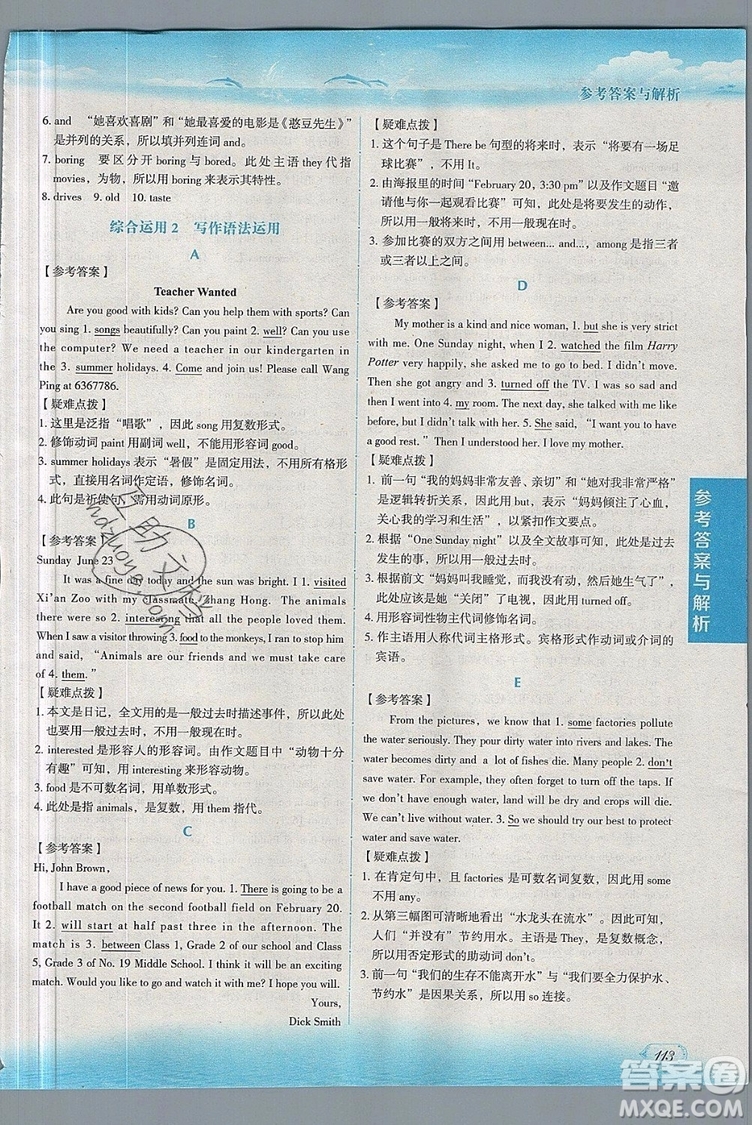 参考答案与解析
6. and “她喜欢喜剧”和“她最喜爱的电影是《憨豆先生》”
是并列的关系，所以填并列连词and。
7. boring 要区分开boring与bored。此处主语they代指
movies，为物，所以填boring来表示其特性。
8. drives 9. old 10. taste
综合运用2 写作语法运用
A
【参考答案】
Teacher Wanted
Are you good with kids? Can you help them with sports? Can
you sing 1. songs beautifully? Can you paint 2. well? Can you use
the computer? We need a teacher in our kindergarten in
the 3. summer holidays. 4. Come and join us! Please call Wang
Ping at 6367786.
【疑难点拨】
1. 这里是泛指“唱歌”，因此song用复数形式。
2. 修饰动词paint用副词well，不能用形容词good。
3. summer holidays表示“暑假”是固定用法，不用所有格形
式，直接用名词作定语，修饰名词。
4. 此句是祈使句，需用动词原形。
B
【参考答案】
Sunday June 23
It was a fine day today and the sun was bright. I 1. visited
Xi'an Zoo with my classmate Zhang Hong. The animals
there were so 2. interesting that all the people loved them.
When I saw a visitor throwing 3. food to the monkeys, I ran to stop him
and said, “Animals are our friends and we must take
care of 4. them.”
【疑难点拨】
1. 本文是日记，全文用的是一般过去时描述事件，所以此处
也要用一般过去时。
2. interested是形容人的形容词。由作文题目中“动物十分
有趣”可知，用interesting来形容动物。
3. food是不可数名词，用单数形式。
4. 此处是指animals，是复数，所以用them指代。
C
【参考答案】
Hi, John Brown,
I have a good piece of news for you. 1. There is going to be a
football match on the second football field on February 20. It
2. will start at half past three in the afternoon. The
match is 3. between Class 1, Grade 2 of our school and Class
5, Grade 2 of No. 19 Middle School. I think it will be exciting.
Would you like to go and watch it with me? I'm looking
forward to your early reply.
Yours,
Dick Smith
【疑难点拨】
1. 这个句子是There be句型的将来时，表示“将要有一场足
球比赛”，不用It。
2. 由海报里的时间“February 20, 3:30 pm”以及作文题目“邀
请他与你一起观看比赛”可知，此处指将要发生的动作，所
以用一般将来时。
3. 参加比赛的双方之间用between...and...，among是指三者
或三者以上之间。
D
【参考答案】
My mother is a kind and nice woman, 1. but she is very strict
with me. One Sunday night, when I 2. watched the film Harry
Potter very happily, she asked me to go to bed. I didn't move.
Then she got angry and 3. turned off the TV. I was so sad and
then I went into 4. my room. The next day, she smiled at me like
before, but I didn't talk with her. 5. She said, “I want you to have
a good rest.” Then I understood her. I love my mother.
【疑难点拨】
1. 前一句“我的妈妈非常友善、亲切”和“她对我非常严格”
是逻辑转折关系，所以用but，表示“妈妈倾注了心血，
关心我的学习和生活”，以紧扣作文要点。
2. 根据“One Sunday night”以及全文故事可知，此处是过去
发生的事，所以用一般过去时。
3. 根据前文“妈妈叫我睡觉，而我没有动，然后她生气了”，
此处应该是她“关闭”了电视，所以用turned off。
4. 用形容词性物主代词修饰名词。
5. 作主语用人称代词主格形式。宾格形式作动词或介词的
宾语。
E
【参考答案】
From the pictures, we know that 1. some factories pollute
the water seriously. They pour dirty water into rivers and lakes. The
water becomes dirty and a lot of fishes die. Many people 2. don't
save water. For example, they often forget to turn off the taps. If
we don't have enough water, land will be dry and crops will die.
We can't live without water. 3. So we should try our best to protect
water and save water.
【疑难点拨】
1. 在肯定句中，且factories是可数名词复数，因此用some
不用any。
2. 从第三幅图可清晰地看出“水龙头在流水”。当今很多
人们“并没有”节约用水。主语是They，是复数概念，
所以用否定形式的助动词don't。
3. 前一句“我们的生存不能离开水”与“我们要全力保护水、
节约水”，是因果关系，所以用so连接。
参考答案与解析
113
答案圈
MXQE.COM